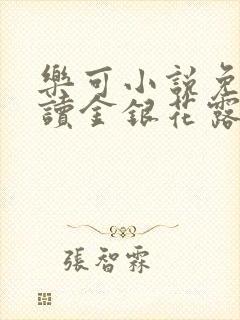 樂可小說免
讀金銀花露
張智霖